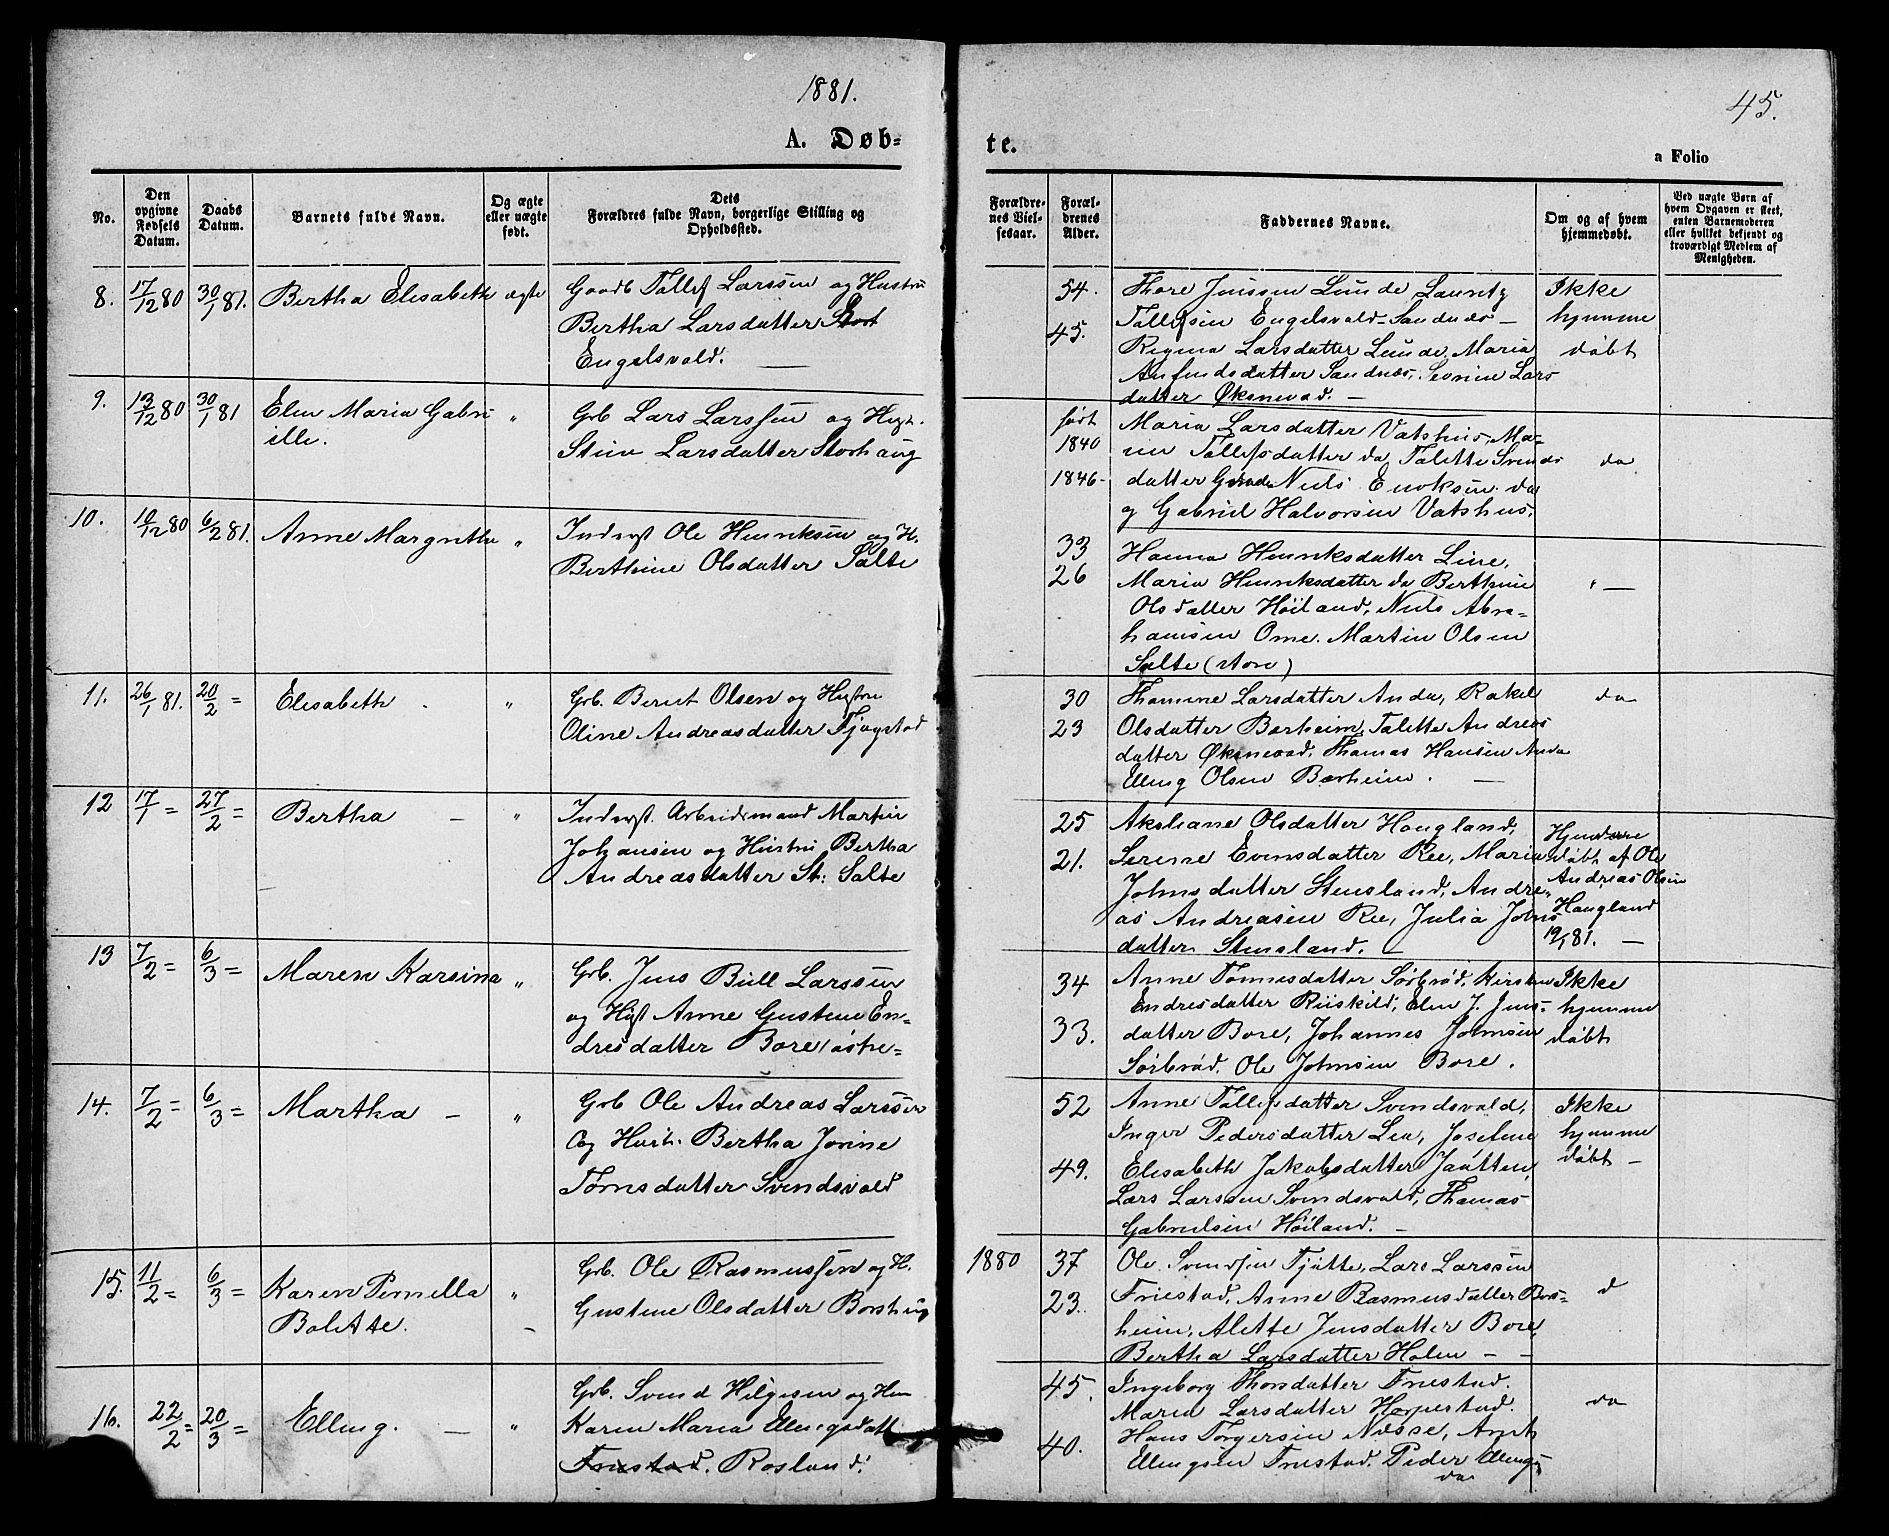 1881.
45.
A. Døb=
te.
a Folio
No.
Den opgivne Fødsels Datum.
Daabs Datum.
Barnets fulde Navn.
Og ægte eller uægte født.
Dets Forældres fulde Navn, borgerlige Stilling og Opholdssted.
Forældrenes Vielsesaar.
Forældrenes Alder.
Faddernes Navne.
Om og af hvem hjemmedøbt.
Ved uægte Børn af hvem Opgaven er skeet, enten Barnemoderen eller hvilket bekjendt og troværdigt Medlem af Menigheden.
8. 17/12 80 30/1 81. Bertha Elisabeth ægte
Gaardb Tollef Larssen og Hustru
Bertha Larsdatter
Engelsvold. —
54.
45.
Thore Jonssen Lunde, Lauritz
Tollefsen Engelsvold- Sandnes —
Regina Larsdatter Lunde, Maria
Anfindsdatter Sandnes, Serine Lars
datter Øksnevad. —
Ikke
hjemme
døbt
9. 13/12 80 30/1 81 Elen Maria Gabri
elle. "
Grb Lars Larssen og Hust.
Stine Larsdatter Storhaug
født
1840
1846-
Maria Larsdatter Vatshus, Ma=
rin Tollefsdatter do Talette Svends
datter Niels Enoksen do
og Gabriel Halvorsen Vatshus.
do
10. 10/12 80 6/2 81. Anne Margrethe "
Inderst Ole Henriksen og H.
Berthine Olsdatter Salte
33
26
Hanna Henriksdatter Line,
Maria Henriksdatter do Berthine
Olsdatter Høiland, Niels Abra=
hamsen Ome. Martin Olsen
Salte (store)
" —
11. 26/1 81. 20/2 = Elisabeth . "
Grb. Berent Olsen og Hustru
Oline Andreasdatter Tjøgstad
30
23
Thomine Larsdatter Anda, Rakel
Olsdatter Borheim, Talette Andreas
datter Øksnevad, Thomas Hansen Anda
Elling Olsen Borheim. —
do
12 17/1 = 27/2 = Bertha — "
Inderst. Arbeidsmand Martin
Johansen og Hustru Bertha
Andreasdatter St: Salte
25
21.
Olsdatter Haugland,
Serine Evensdatter Ree, Maria
Johnsdatter Stensland, Andre=
as Andreasen Ree, Julia Johns
datter Stensland. —
Hjemme
døbt af Ole
Andreas Olsen
Haugland
19/1 81. —
13 7/2 = 6/3 = Maren Karsina "
Grb. Jens Bull Larssen
og Hust Anne Gustene En=
dresdatter Bore østre=
34
33.
Anne Tønnesdatter Sørbrød, Kirsten
Endresdatter Riiskild, Elen J. Jens=
datter Bore, Johannes Johnsen
Sørbrød. Ole Johnsen Bore.
Ikke
hjemme
døbt
14. 7/2 = 6/3 = Martha — "
Grb Ole Andreas Larssen
og Hust. Bertha Jorine
Tørnsdatter Svendsvold
52
49.
Anne Tollefsdatter Svendsvold,
Inger Pedersdatter Lea, Josefine
Elisabeth Jakobsdatter Jaåtten,
Lars Larssen Svendsvold, Thomas
Gabrielsen Høiland. —
Ikke
hjemme
døbt —
15. 11/2 = 6/3 = Karen Pernella
Bolette. "
Grb. Ole Rasmussen og H.
Gustene Olsdatter Borsheig
1880
37
23.
Ole Svendsen Tjøtte, Lars Larssen
Friestad, Anne Rasmusdatter Bor=
heim, Alette Jensdatter Bore,
Bertha Larsdatter Holen — —
d
16. 22/2 = 20/3 = Elling. — "
Grb. Svend Helgesen og Hu
Karen Maria Ellingsdatt
Friestad. Rosland.
45.
40.
Ingeborg Thorsdatter Friestad.
Maria Larsdatter Herpestad.
Hans Torgersen Næsse, Arnt
Ellingsen Friestad. Peder Ellings=
do
do